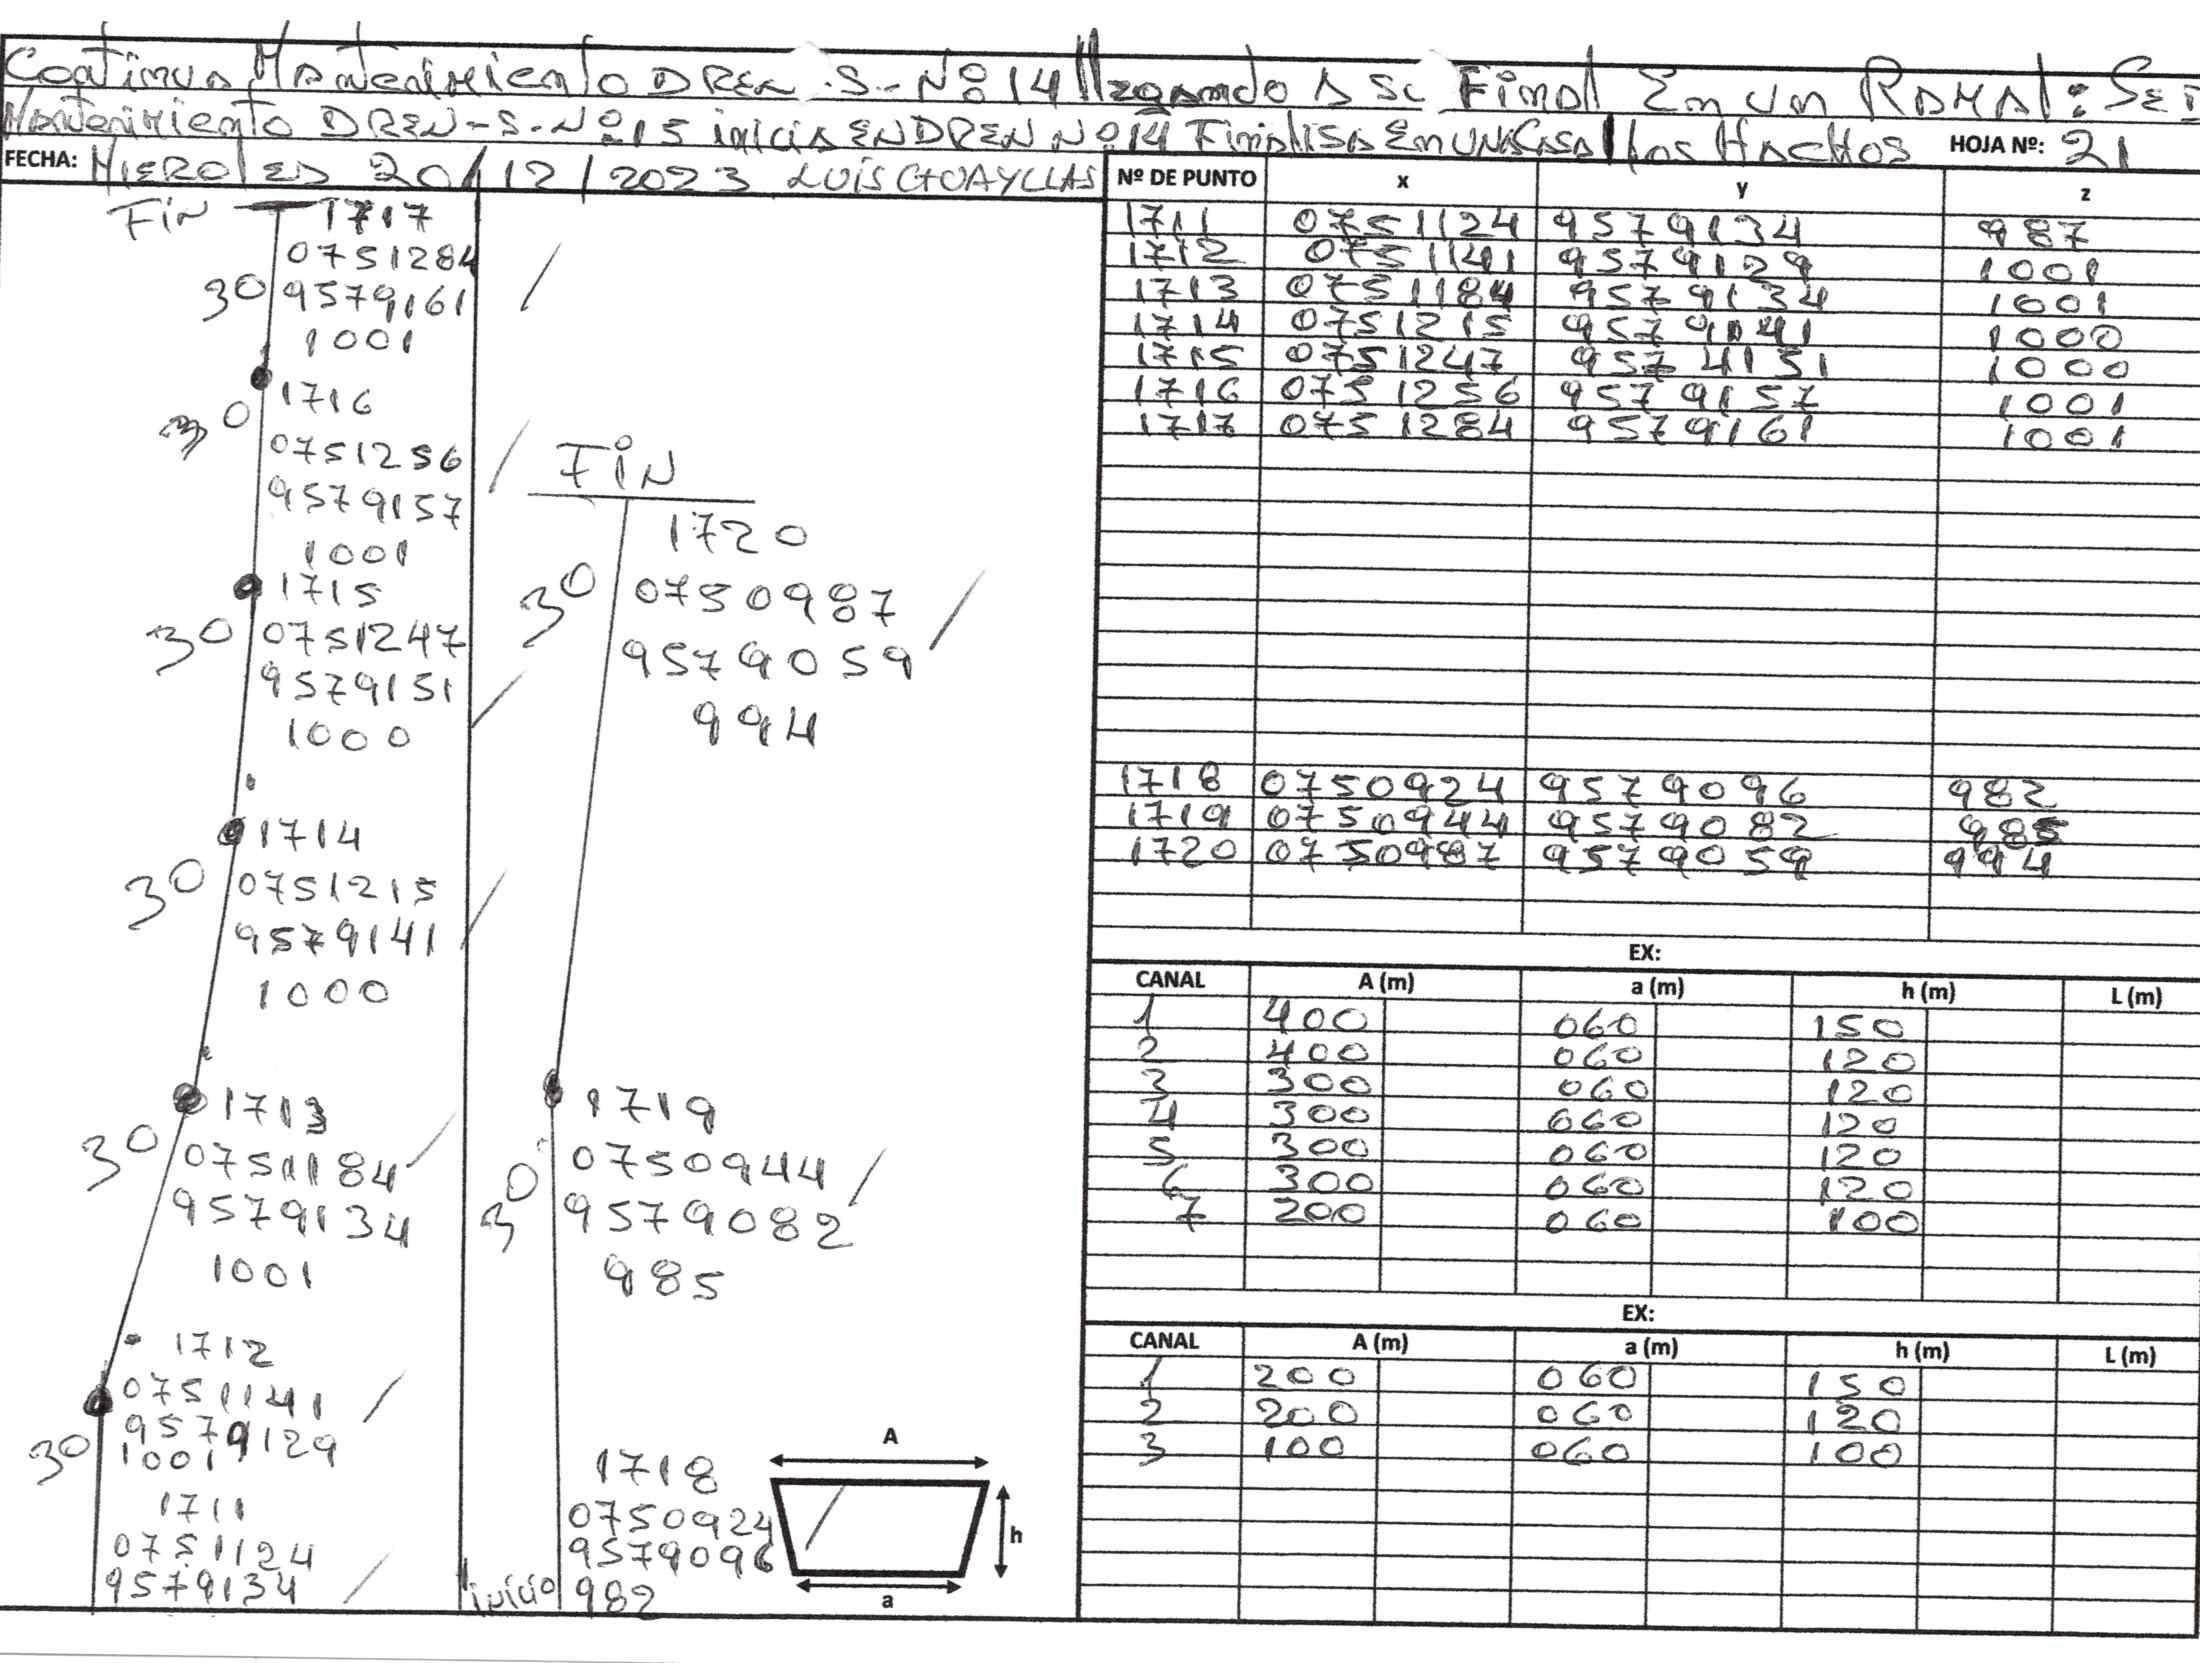 Continua Mantenimiento DREN-S-Nº 14 llegando A Su Final En un RAMAL: SE I
Mantenimiento DREN-S-Nº 15 inicia EN DREN Nº 14 Finalisa En UNA CASA Los HACHOS HOJA Nº: 21
FECHA: MIERCOLES 20/12/2023 LUIS GUAYLLAS
FIN 1717
0751284
30 9579161
1001
1716
30
0751256
9579157
1001
1715
30 0751247
9579151
1000
1714
30 0751215
9579141
1000
1713
30 0751184
9579134
1001
1712
0751141
9579129
30 1001
1711
0751124
9579134
FIN
1720
30 0750987
9579059
994
1719
0750944
30 9579082
985
1718
0750924
9579096
inicio 982
A
h
a
Nº DE PUNTO x y z
1711 0751124 9579134 987
1712 0751141 9579129 1001
1713 0751184 9579134 1001
1714 0751215 9579141 1000
1715 0751247 9574151 1000
1716 0751256 9579157 1001
1717 0751284 9579161 1001
1718 0750924 9579096 982
1719 0750944 9579082 985
1720 0750987 9579059 994
EX:
CANAL A (m) a (m) h (m) L (m)
1 400 060 150
2 400 060 120
3 300 060 120
4 300 060 120
5 300 060 120
6 300 060 120
7 200 060 100
EX:
CANAL A (m) a (m) h (m) L (m)
1 200 060 150
2 200 060 120
3 100 060 100